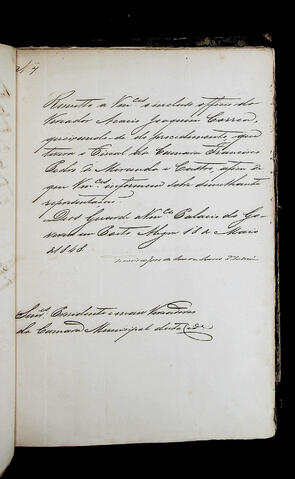 Remetto a Vm.ces o incluso officio do
Vereador Acacio Joaquim Corrêa,
queixando-se do procedimento que
tivera o Fiscal da Camara Francisco
Pedro de Miranda e Castro, afim de
que Vm.ces informem sobre semelhante
representação.
Deos Guarde a Vm.ces Palacio do Go-
verno em Porto Alegre 11 de Maio
de 1848
Senr.es Presidente e mais Vereadores
da Camara Municipal desta Cid.e